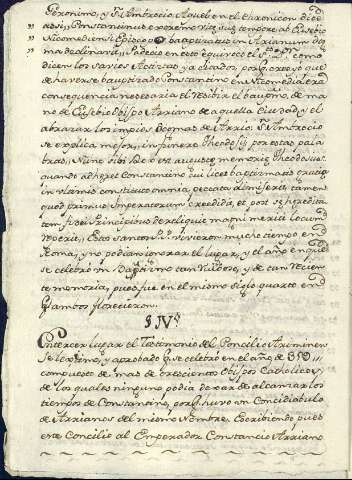 Geronimo, y Sn Ambrocio. Aquel en el Chronicon dice
assi; Constantinus extremo vitæ suæ tempore ab Eusebio
Nicomediensi Episcopo baptizatus in Arrianum dog
ma declinavit; Padecio en esto equivoco el Sto Dr como
dicen los varios Autores ya citados, porque creyó que
de haverse bauptizado Constantino en Nicomedia era
consequencia necesaria el resibir el bauptismo, de ma
no de Eusebio Obispo Arriano de aquella Ciudad, y el
abrazar los impios Dogmas de Arrio. Sn Ambrocio
se explica mejor, in funere Theodosii, por estas pala
bras. Nunc sibi
augustæ memoriæ Theodosius
quando adheret Constantino, cui licet baptismatis gratia
in ultimis constituto omnia peccata dimiserit, tamen
quod primus Imperatorum credidit, et post se hereditatem
fidei Principibus dereliquit, magni meriti locum
reperit. Estos Santos
vivieron mucho tiempo en
Roma, y no podian ignorar el lugar, y el año en que
se celebró un Baptismo tan ruidoso, y de tan recien
te memoria, pues fue en el mismo siglo quarto en
q ambos florecieron.
§ IV
En tercer lugar el Testimonio del Concilio Ariminen
se legitimo, y aprobado que se celebró en el año de 359
compuesto de mas de trescientos Obispos Catholicos,
de los quales ninguno podia dexar de alcanzar los
tiempos de Constantino, porq huvo un Conciliabulo
de Arrianos del mismo Nombre. Escribiendo pues
este Concilio al Emperador Constancio Arriano